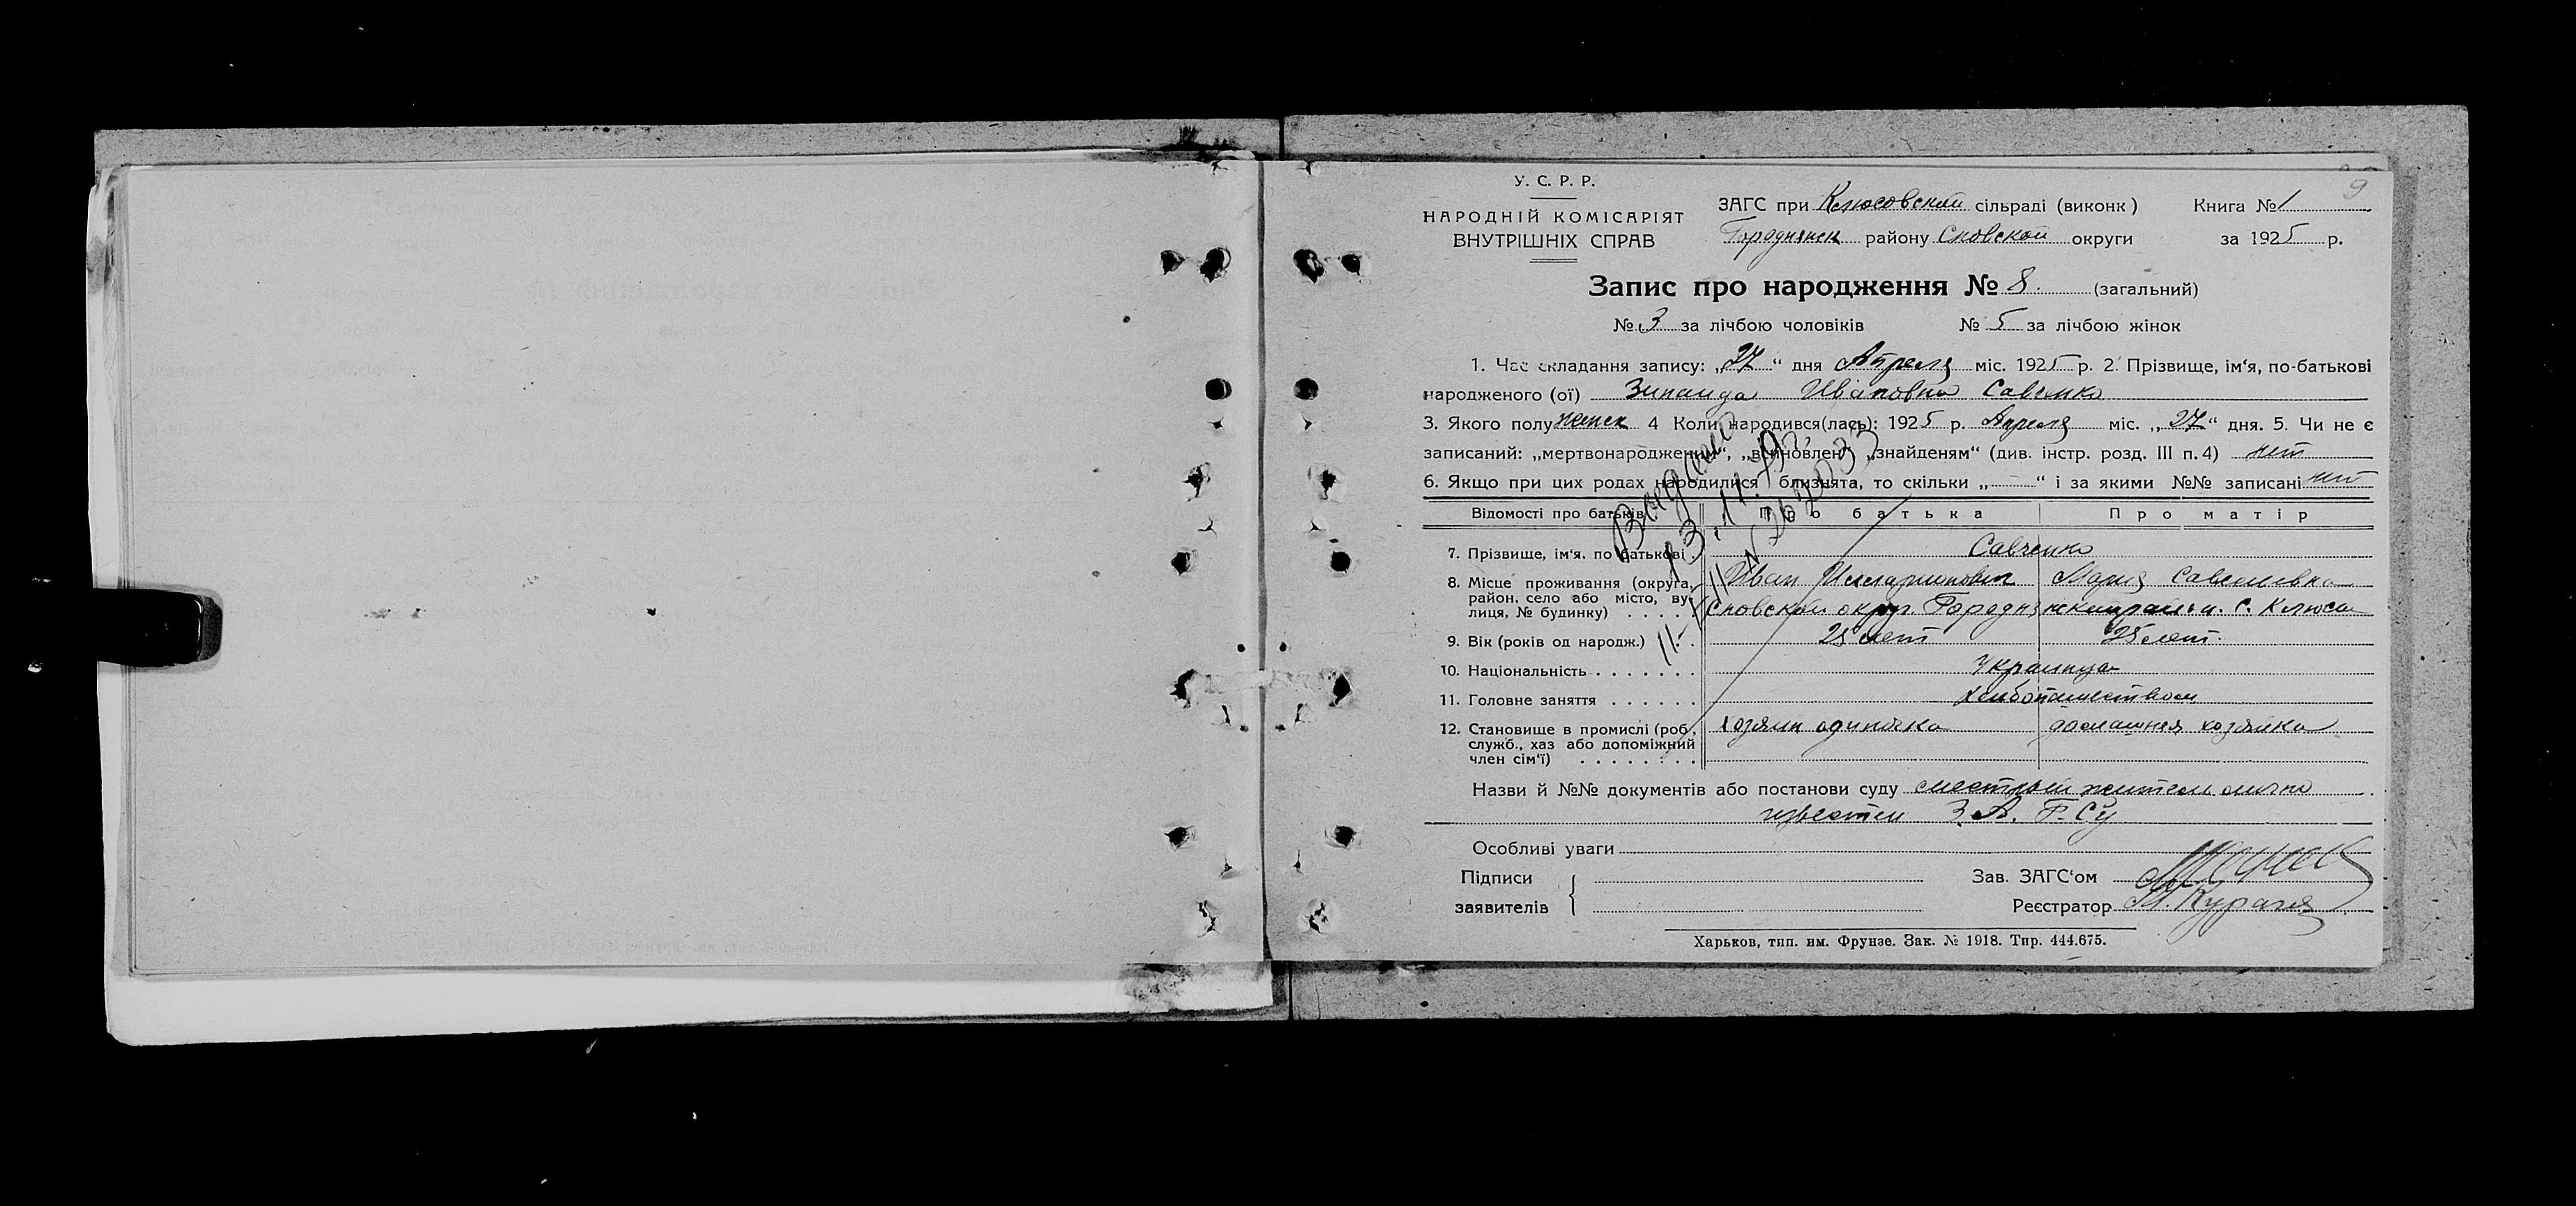 9
У. С. Р. Р.
НАРОДНІЙ КОМІСАРІЯТ
ВНУТРІШНІХ СПРАВ
ЗАГС при Клюсовской сільраді (виконк) Книга № 1
Городнянск району Сновской округи за 1925 р.
Запис про народження № 8. (загальний)
№ 3 за лічбою чоловіків № 5 за лічбою жінок
1. Час складання запису: „27“ дня Апреля міс. 1925 р. 2. Прізвище, ім‘я, по-батькові
народженого (ої) Зинаида Ивановна Савченко
3. Якого полу женск 4 Коли народився(лась): 1925 р. Апреля міс. „27“ дня. 5. Чи не є
записаний: „мертвонародженим“, „всиновлен“ „знайденям“ (див. інстр. розд. III п. 4) нет
6. Якщо при цих родах народилися близнята, то скільки „ “ і за якими №№ записані нет
Відомості про батьків Про батька Про матір
7. Прізвище, ім‘я, по батькові . Савченко
8. Місце проживання (округа, Иван Мария Савельевна
район, село або місто, ву-
лиця, № будинку) . . . . . Сновской округ. с. Клюсы
9. Вік (років од народж.) . . 25 лет 25 лет.
10. Національність . . . . . . . Украинцы
11. Головне заняття . . . . . . хлебопашеством
12. Становище в промислі (роб., хозяин одиночка домашняя хозяйка
служб., хаз або допоміжний
член сім‘ї) . . . . . . . .
Назви й №№ документів або постанови суду местный жители лично
известен З. А. Г. Су
Особливі уваги
Підписи
заявителів
Зав. ЗАГС‘ом
Реєстратор
Харьков, тип. им. Фрунзе. Зак. № 1918. Тир. 444.675.